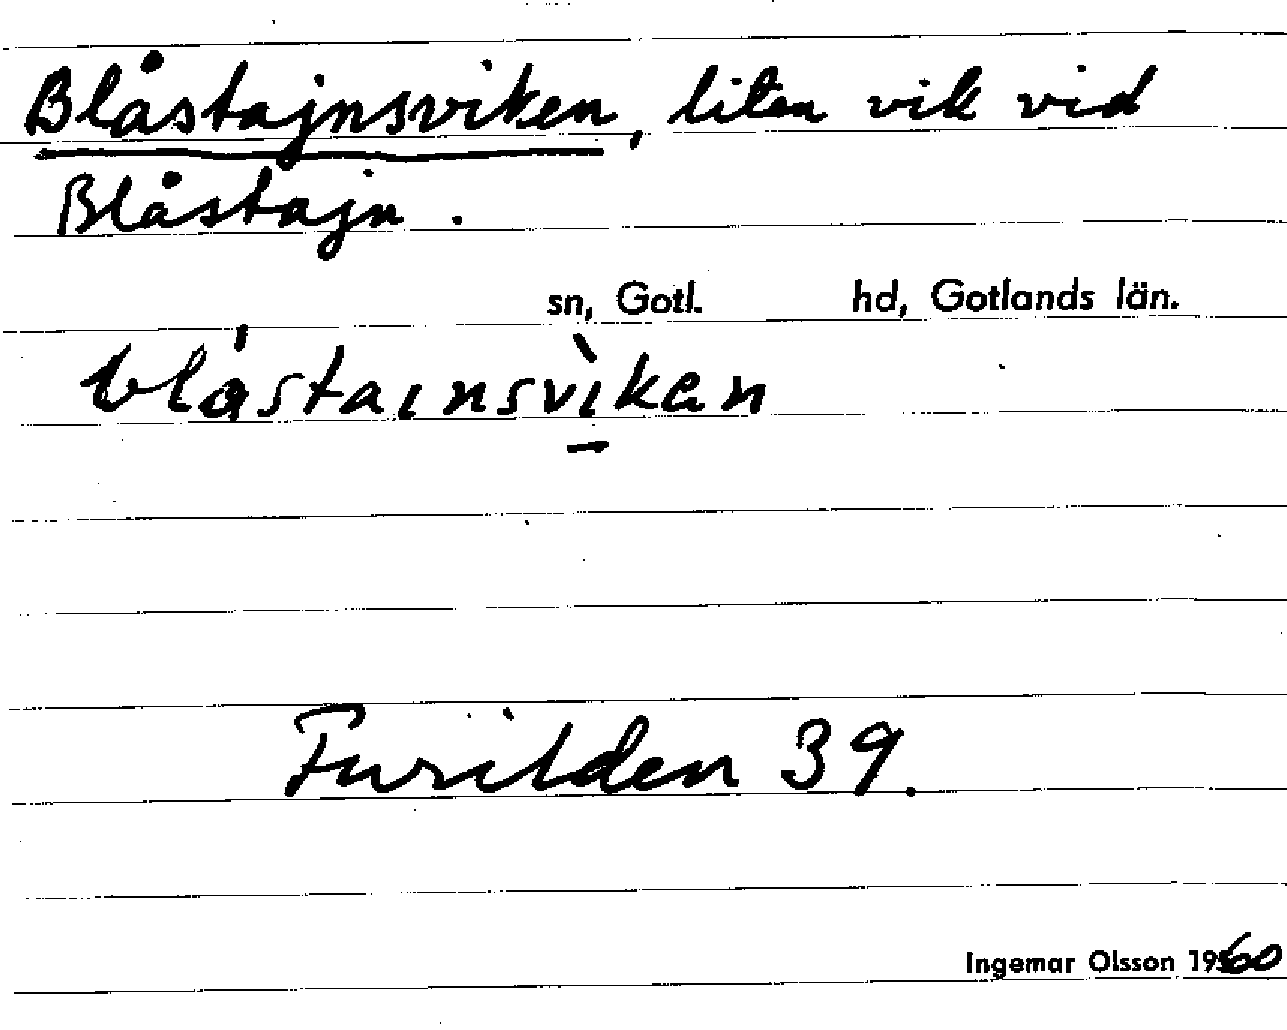 Blåstajnsviken, liten vik vid
Blåstajn.
sn, Gotl. hd, Gotlands län.
blástaınsvìkan
Furilden 39.
Ingemar Olsson 1960